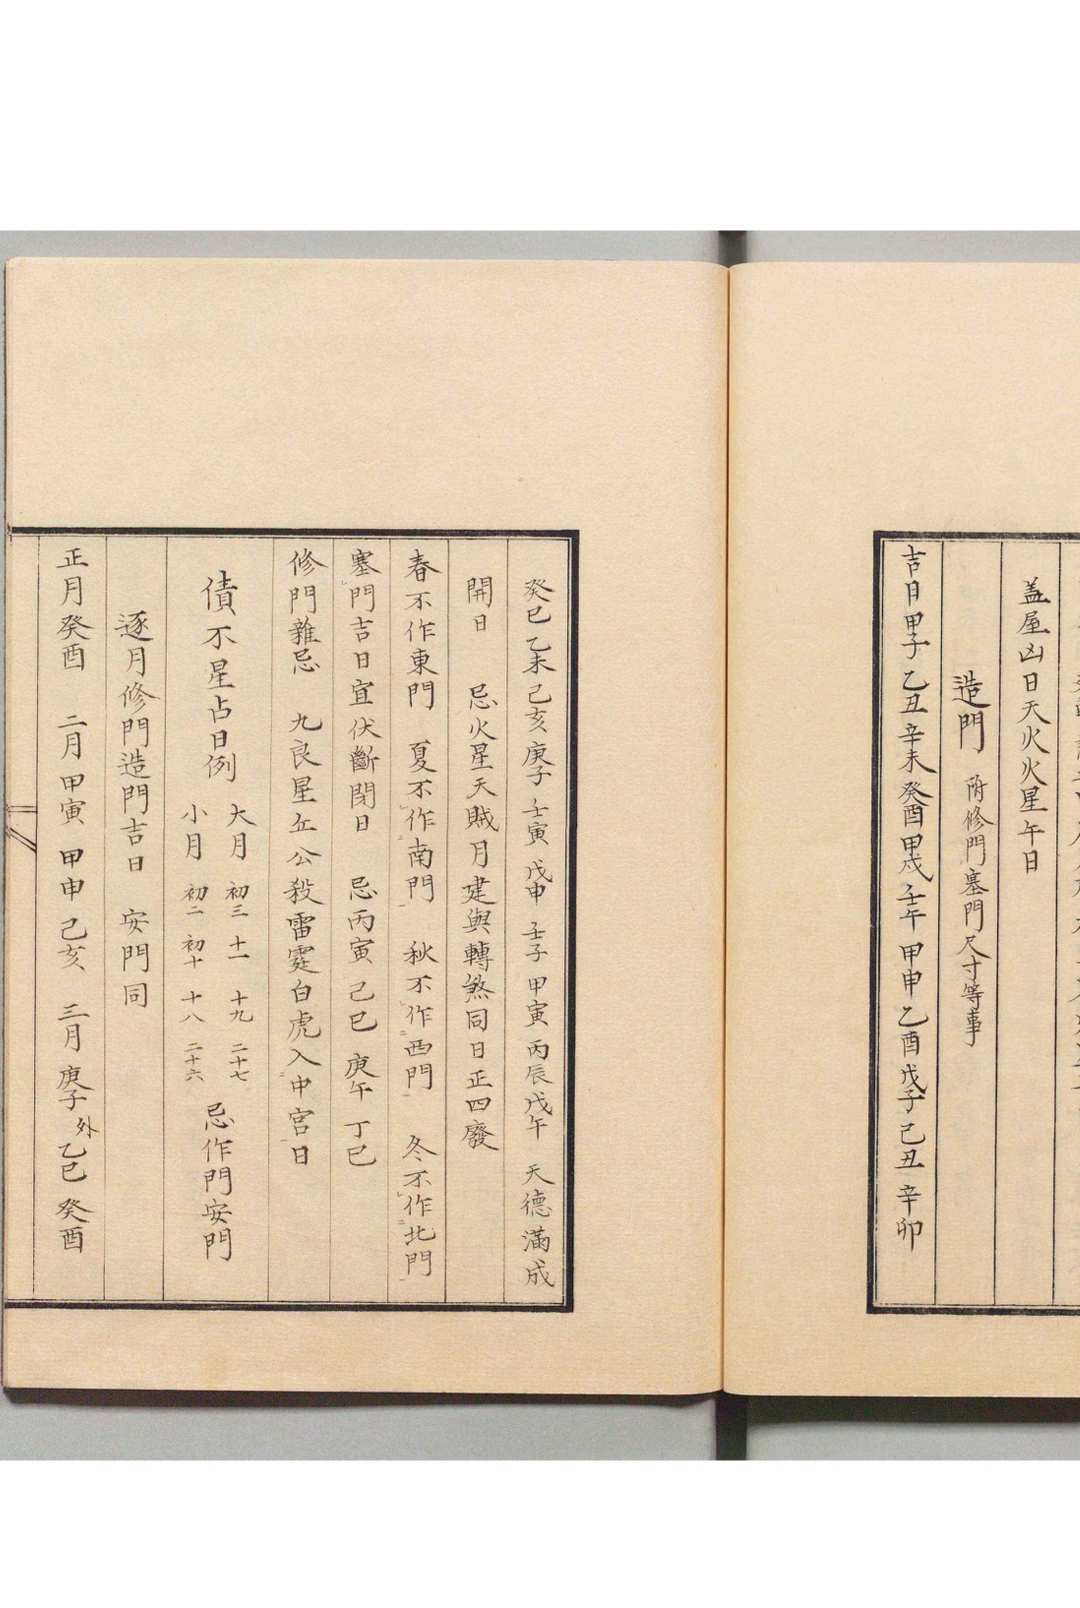 盖屋凶日天火火星午日
造門 附修門塞門尺寸等事
吉日甲子 乙丑 辛未 癸酉 甲戌 壬午 甲申 乙酉 戊子 己丑 辛卯
癸巳 乙未 己亥 庚子 壬寅 戊申 壬子 甲寅 丙辰 戊午 天德滿成
開日 忌火星天賊月建與轉煞同日正四廢
春不作東門 夏不作南門 秋不作西門 冬不作北門
塞門吉日宜伏斷閉日 忌丙寅 己巳 庚午 丁巳
修門雜忌 九良星丘公殺雷霆白虎入中宮日
債不星占日例
大月 初三 十一 十九 二十七
小月 初二 初十 十八 二十六
忌作門安門
逐月修門造門吉日 安門同
正月癸酉 二月甲寅 甲申 己亥 三月庚子 外乙巳 癸酉